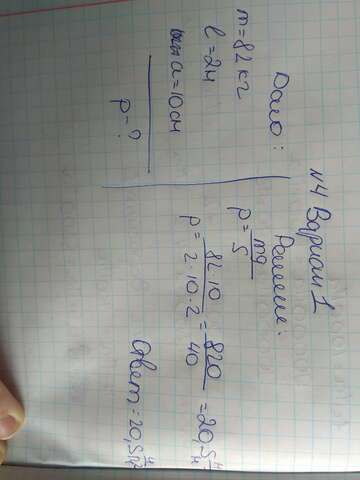 N4 Вариан 1
Дано:
m = 82 кг
l = 2м
a = 10см
p - ?
Решение:
p = mg/S
p = 82·10/2·10·2 = 820/40 = 20,5 Н/м
Ответ: 20,5 Н/м²